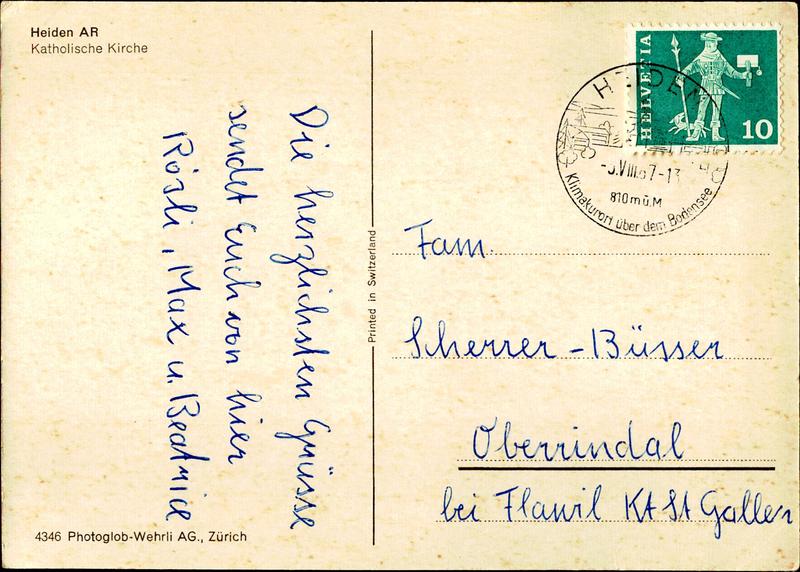 Heiden AR
Katholische Kirche
Die herzlichsten Grüsse
sendet Euch von hier
Rösli, Max u. Beatrice
4346 Photoglob-Wehrli AG., Zürich
Printed in Switzerland
HELVETIA
10
HEIDEN
VIII.67-13
810 m ü. M
Klimakurort über dem Bodensee
Fam.
Scherrer-Büsser
Oberrindal
bei Flawil Kt St Gallen